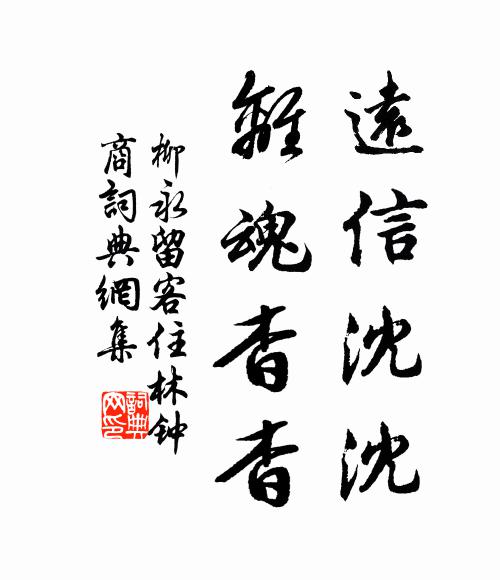 遠信沈沈
離魂杳杳
柳永留客住林钟
商詞典網集
詞典网印